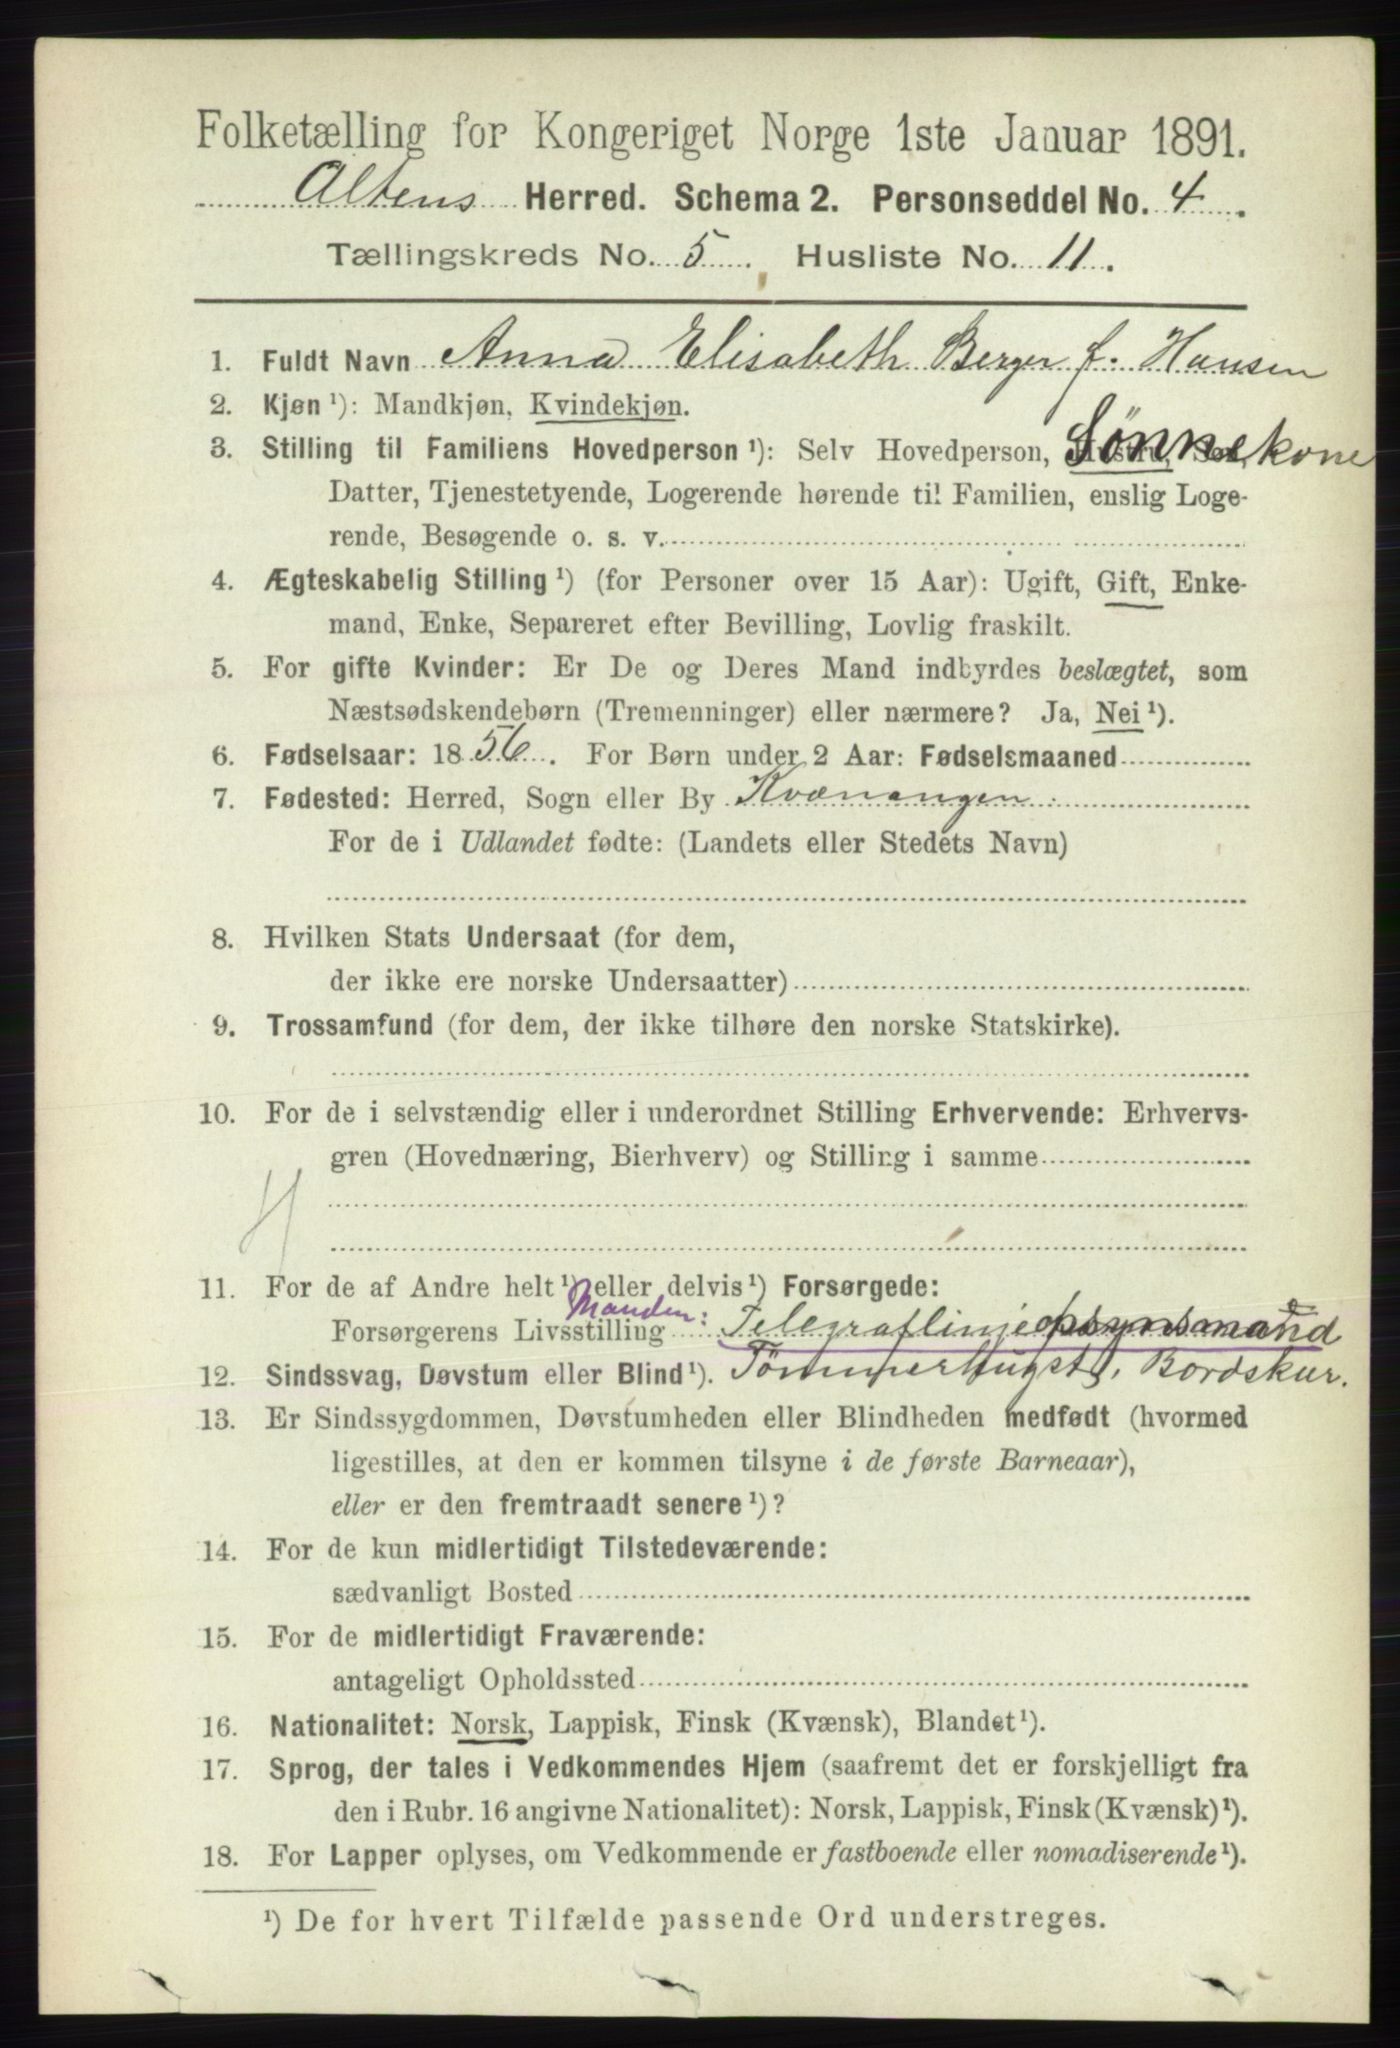 Folketælling for Kongeriget Norge 1ste Januar 1891.
Altens Herred. Schema 2. Personseddel No. 4.
Tællingskreds No. 5. Husliste No. 11.
1. Fuldt Navn Anna Elisabeth Berger f. Hansen
2. Kjøn ¹): Mandkjøn, Kvindekjøn.
3. Stilling til Familiens Hovedperson ¹): Selv Hovedperson, Hustru, Søn, Sønnekone
Datter, Tjenestetyende, Logerende hørende til Familien, enslig Loge-
rende, Besøgende o. s. v.
4. Ægteskabelig Stilling ¹) (for Personer over 15 Aar): Ugift, Gift, Enke-
mand, Enke, Separeret efter Bevilling, Lovlig fraskilt.
5. For gifte Kvinder: Er De og Deres Mand indbyrdes beslægtet, som
Næstsødskendebørn (Tremenninger) eller nærmere? Ja, Nei ¹).
6. Fødselsaar: 1856. For Børn under 2 Aar: Fødselsmaaned
7. Fødested: Herred, Sogn eller By Kvænangen
For de i Udlandet fødte: (Landets eller Stedets Navn)
8. Hvilken Stats Undersaat (for dem,
der ikke ere norske Undersaatter)
9. Trossamfund (for dem, der ikke tilhøre den norske Statskirke).
10. For de i selvstændig eller i underordnet Stilling Erhvervende: Erhvervs-
gren (Hovednæring, Bierhverv) og Stilling i samme
11. For de af Andre helt ¹) eller delvis ¹) Forsørgede:
Manden:
Forsørgerens Livsstilling Telegraflinjeopsynsmand
12. Sindssvag, Døvstum eller Blind ¹). Tømmerhugst, Bordskur.
13. Er Sindssygdommen, Døvstumheden eller Blindheden medfødt (hvormed
ligestilles, at den er kommen tilsyne i de første Barneaar),
eller er den fremtraadt senere ¹)?
14. For de kun midlertidigt Tilstedeværende:
sædvanligt Bosted
15. For de midlertidigt Fraværende:
antageligt Opholdssted
16. Nationalitet: Norsk, Lappisk, Finsk (Kvænsk), Blandet ¹).
17. Sprog, der tales i Vedkommendes Hjem (saafremt det er forskjelligt fra
den i Rubr. 16 angivne Nationalitet): Norsk, Lappisk, Finsk (Kvænsk) ¹).
18. For Lapper oplyses, om Vedkommende er fastboende eller nomadiserende ¹).
¹) De for hvert Tilfælde passende Ord understreges.